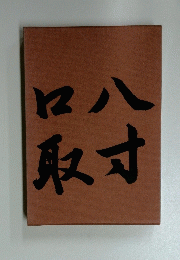 八寸
口取